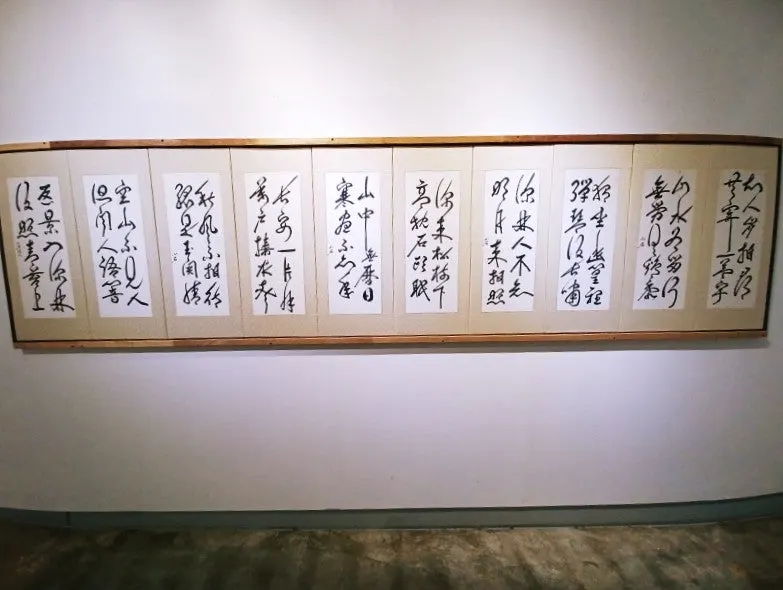 山水
獨坐幽篁裡
彈琴復長嘯
深林人不知
明月來相照
偶來松樹下
高枕石頭眠
山中無曆日
寒盡不知年
長安一片月
萬戶擣衣聲
秋風不
總是玉關情
空山不見人
但聞人語響
返景入深林
復照青苔上